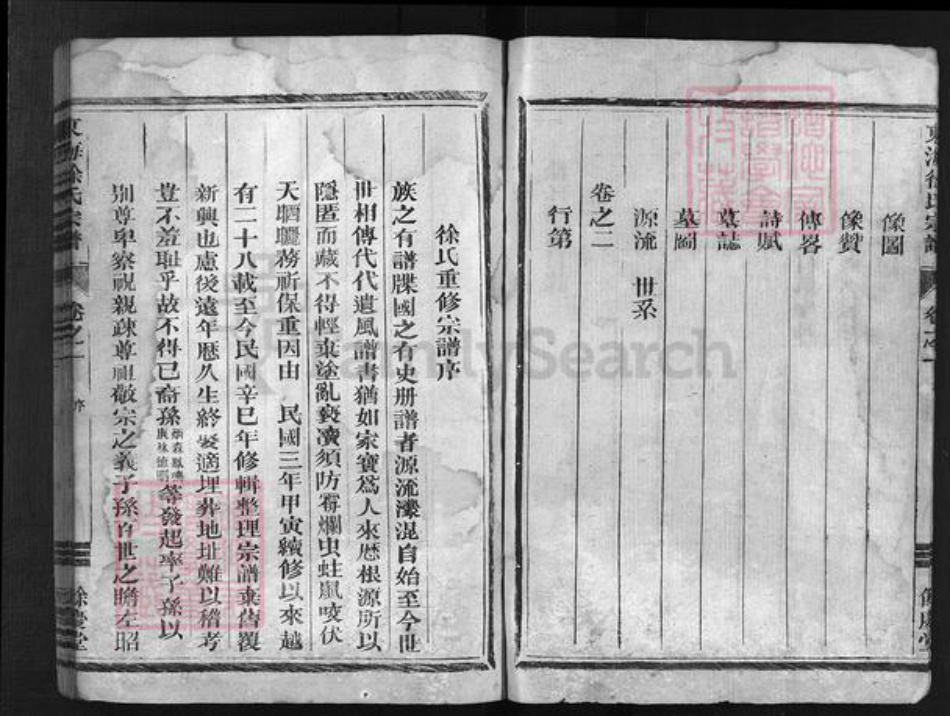 像圖
像贊
傳畧
詩賦
墓誌
墓圖
源流 世系
卷之二
行第
徐氏重修宗譜序
族之有譜牒國之有史册譜者源流瀠混自始至今世
世相傳代代遺風譜書猶如家寶爲人來歷根源所以
隱匿而藏不得輕棄塗亂褻瀆須防霉爛虫蛀鼠咬伏
天晒曬務祈保重因由 民國三年甲寅續修以來越
有二十八載至今民國辛巳年修輯整理宗譜棄舊覆
新興也慮後遠年歷久生終娶適埋葬地址難以稽考
豈不羞耻乎故不得已裔孫等發起率子孫以
別尊卑察視親疎尊祖敬宗之義子孫百世之瞻左昭
東海徐氏宗譜 卷之一 序 餘慶堂
FamilySearch